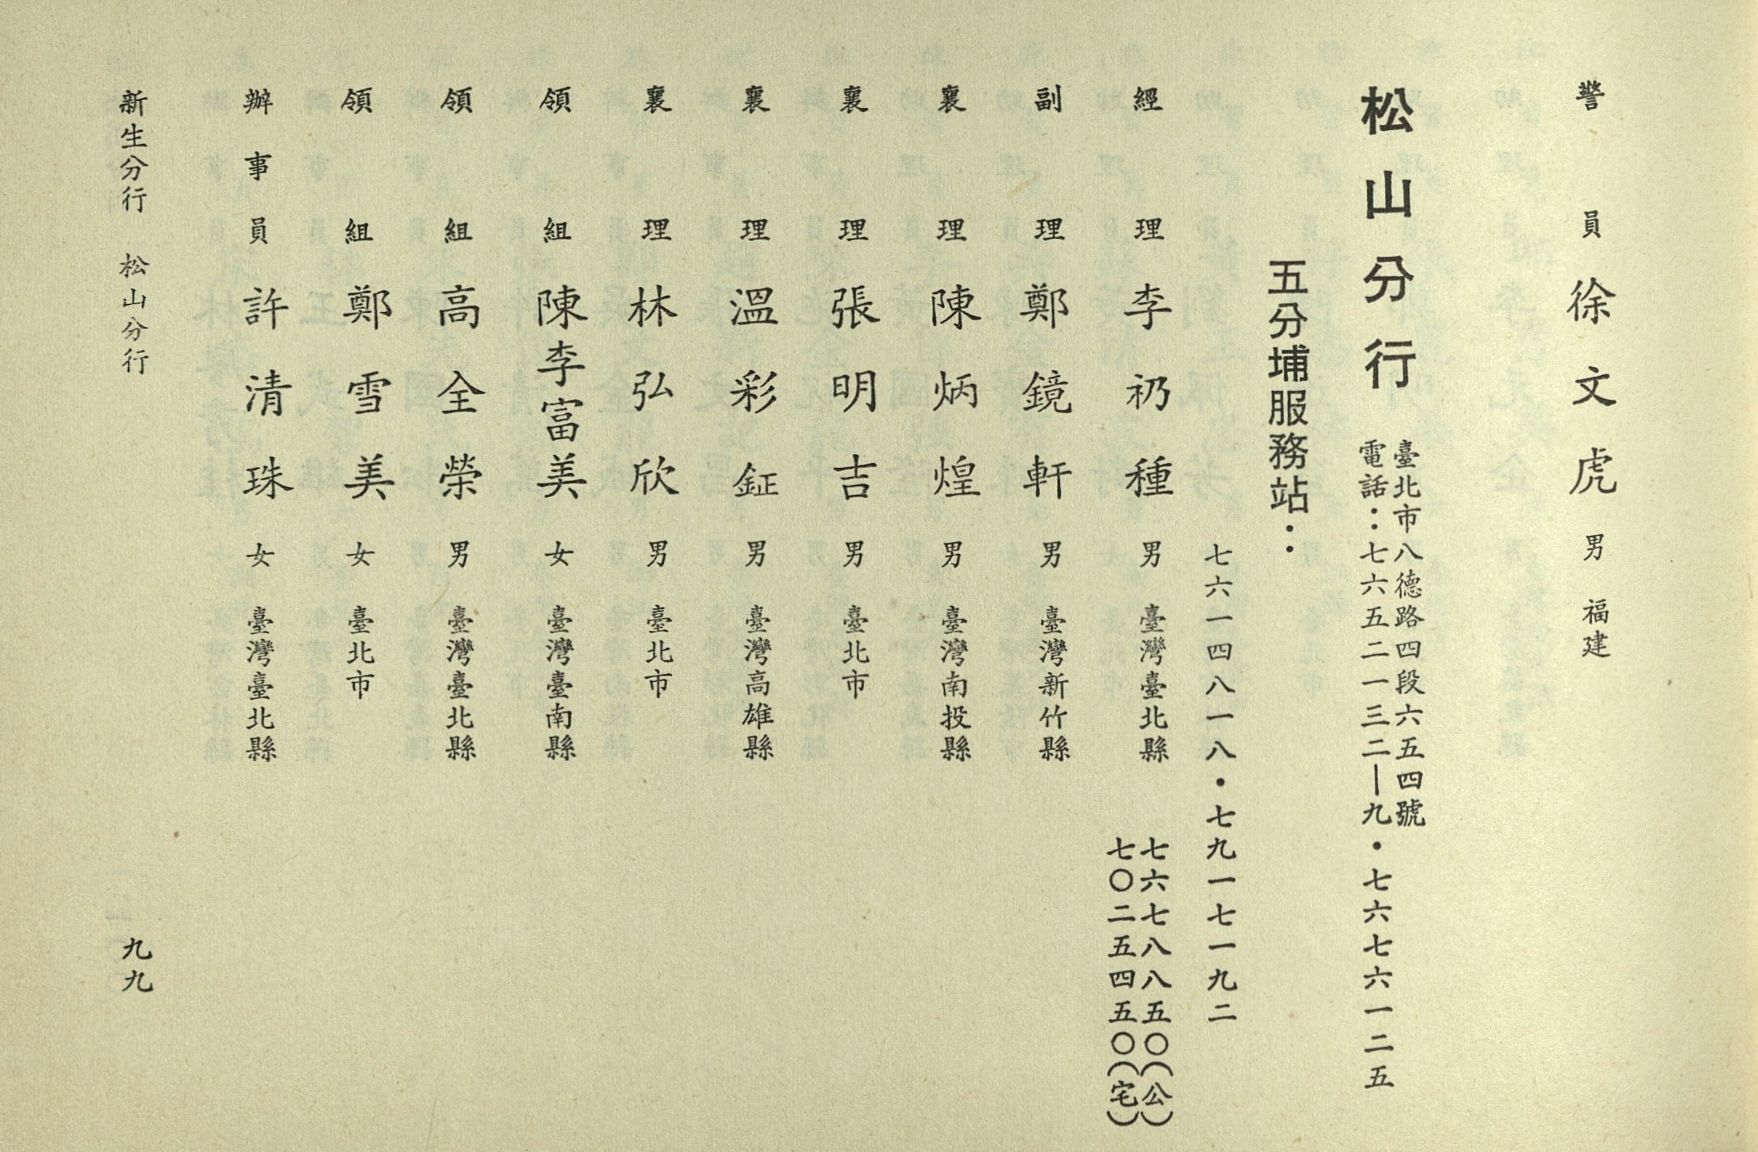 警員 徐文虎 男 福建
松山分行
臺北市八德路四段六五四號
電話：七六五二一三二—九・七六七六一二五
五分埔服務站：
七六一四八一八・七九一七一九二
經理 李礽種 男 臺灣臺北縣 七六七八八五〇（公）
七〇二五四五〇（宅）
副理 鄭鏡軒 男 臺灣新竹縣
襄理 陳炳煌 男 臺灣南投縣
襄理 張明吉 男 臺北市
襄理 溫彩鉦 男 臺灣高雄縣
襄理 林弘欣 男 臺北市
領組 陳李富美 女 臺灣臺南縣
領組 高全榮 男 臺灣臺北縣
領組 鄭雪美 女 臺北市
辦事員 許清珠 女 臺灣臺北縣
新生分行 松山分行
九九